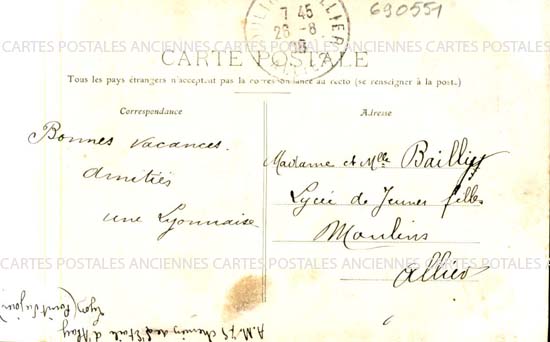 7 45
26 - 8
08
690551
CARTES POSTALES ANCIENNES CARTES POSTALES ANCIENNES CARTES POSTALES
CARTE POSTALE
Tous les pays étrangers n'acceptent pas la correspondance au recto (se renseigner à la poste.)
Correspondance
Bonnes vacances.
Amitiés
une Lyonnaise
Adresse
Madame et Mlle Baillig
Lycée de Jeunes filles
Moulins
Allier
CARTES POSTALES ANCIENNES CARTES POSTALES ANCIENNES CARTES POSTALES
A.M. 75 chemin de l'Etoile d'Alay
Lyon (Point du jour)